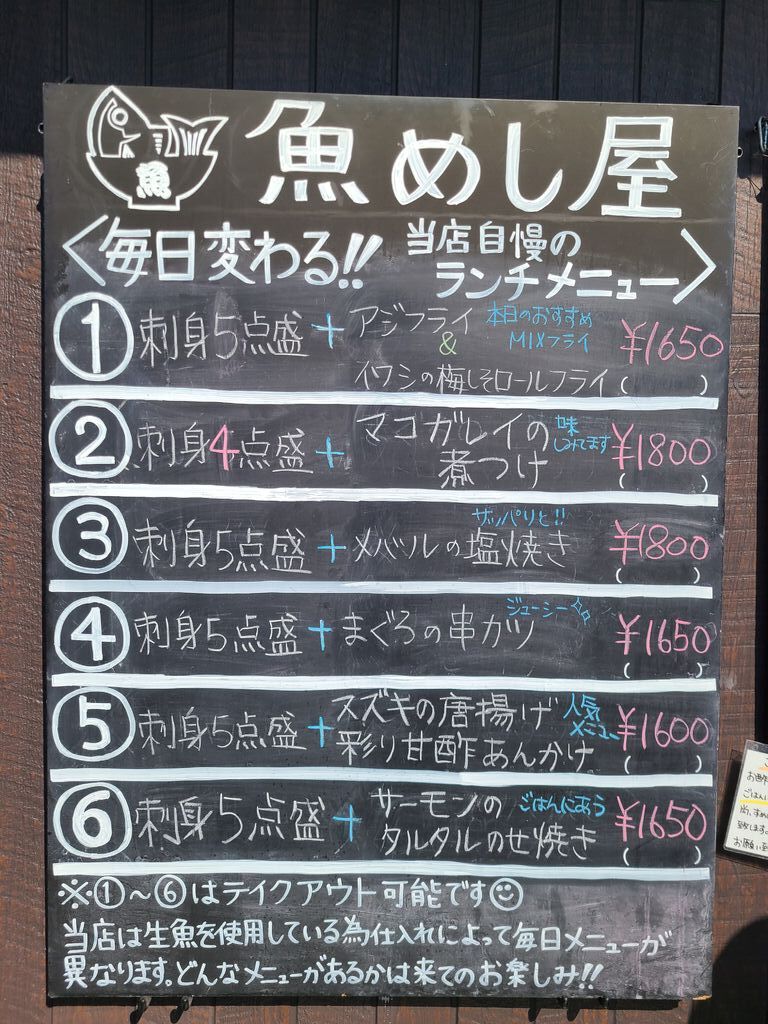 魚
魚めし屋
<毎日変わる!! 当店自慢の
ランチメニュー>
① 刺身5点盛 + アジフライ 本日のおすすめ ¥1650
& MIXフライ
イワシの梅しそロールフライ ( )
② 刺身4点盛 + マコガレイの 味 ¥1800
煮つけ しみてます ( )
サッパリと!!
③ 刺身5点盛 + メバルの塩焼き ¥1800
( )
ジューシー
④ 刺身5点盛 + まぐろの串カツ ¥1650
( )
⑤ 刺身5点盛 + スズキの唐揚げ 人気 ¥1600
彩り甘酢あんかけ メニュー ( )
⑥ 刺身5点盛 + サーモンの ごはんにあう ¥1650
タルタルのせ焼き ( )
※①~⑥はテイクアウト可能です☺
当店は生魚を使用している為仕入れによって毎日メニューが
異なります。どんなメニューがあるかは来てのお楽しみ!!
ごはん
お願い